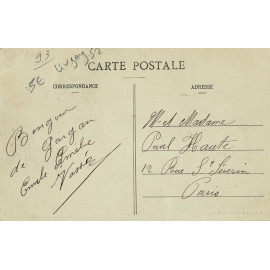 93
56
CARTE POSTALE
CORRESPONDANCE
ADRESSE
Bonjour
de Gargan
Emile Amélie
Vassé
M. et Madame
Paul Haute
12 Rue St Severin
Paris